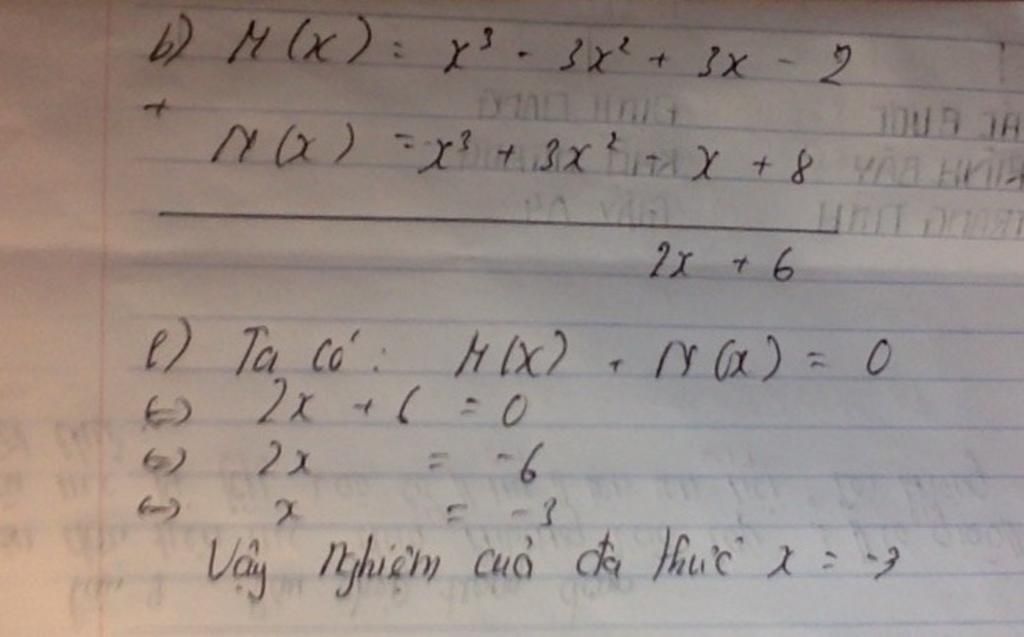 b) M(x) = x³ - 3x² + 3x - 2
+
N(x) = x³ + 3x² - x + 8
2x + 6
c) Ta có: M(x) + N(x) = 0
<=> 2x + 6 = 0
<=> 2x = -6
<=> x = -3
Vậy nghiệm cuả đa thức x = -3